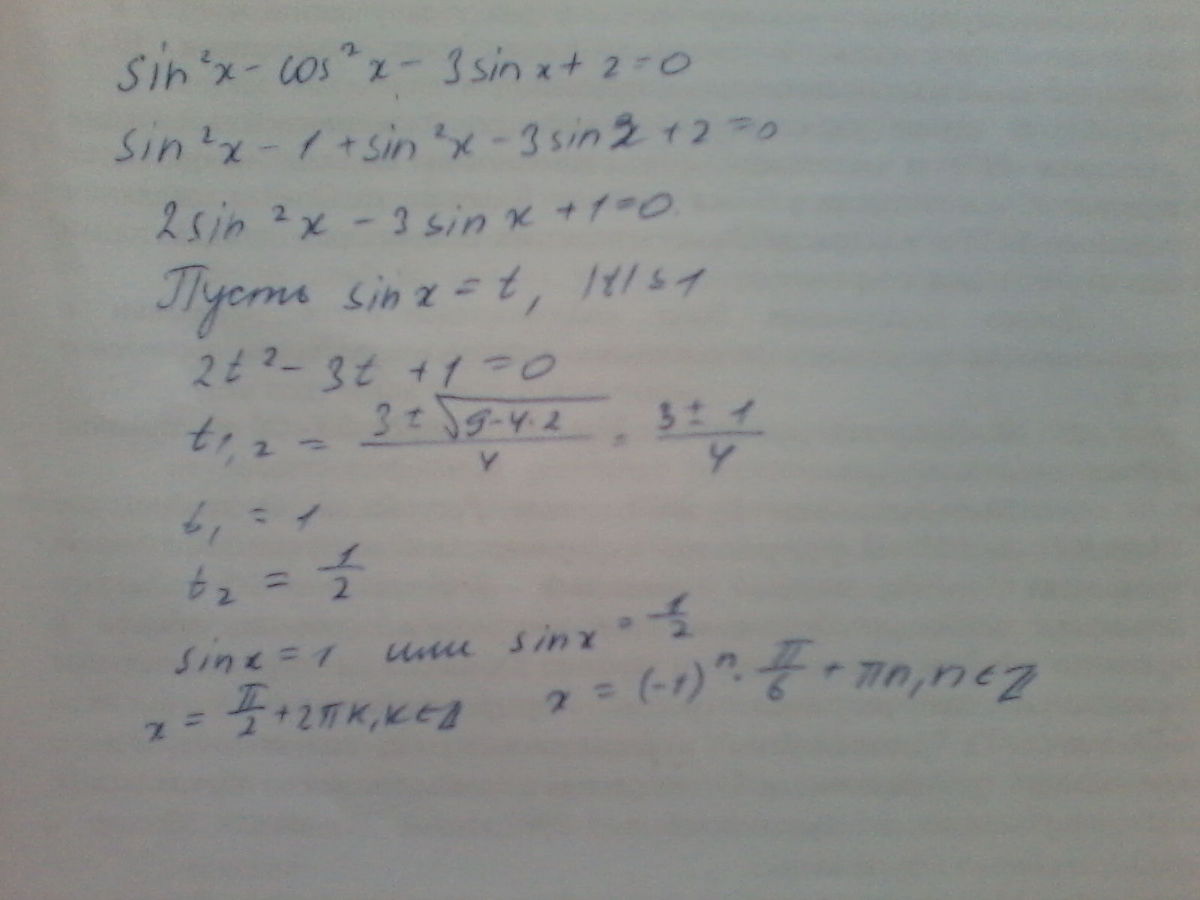 sin²x - cos²x - 3sinx + 2 = 0
sin²x - 1 + sin²x - 3sinx + 2 = 0
2sin²x - 3sinx + 1 = 0
Пусть sinx = t, |t| ≤ 1
2t² - 3t + 1 = 0
t1,2 = (3 ± √(9-4·2))/4 = (3 ± 1)/4
t₁ = 1
t₂ = 1/2
sinx = 1 или sinx = 1/2
x = π/2 + 2πk, k∈Z x = (-1)ⁿ · π/6 + πn, n∈Z